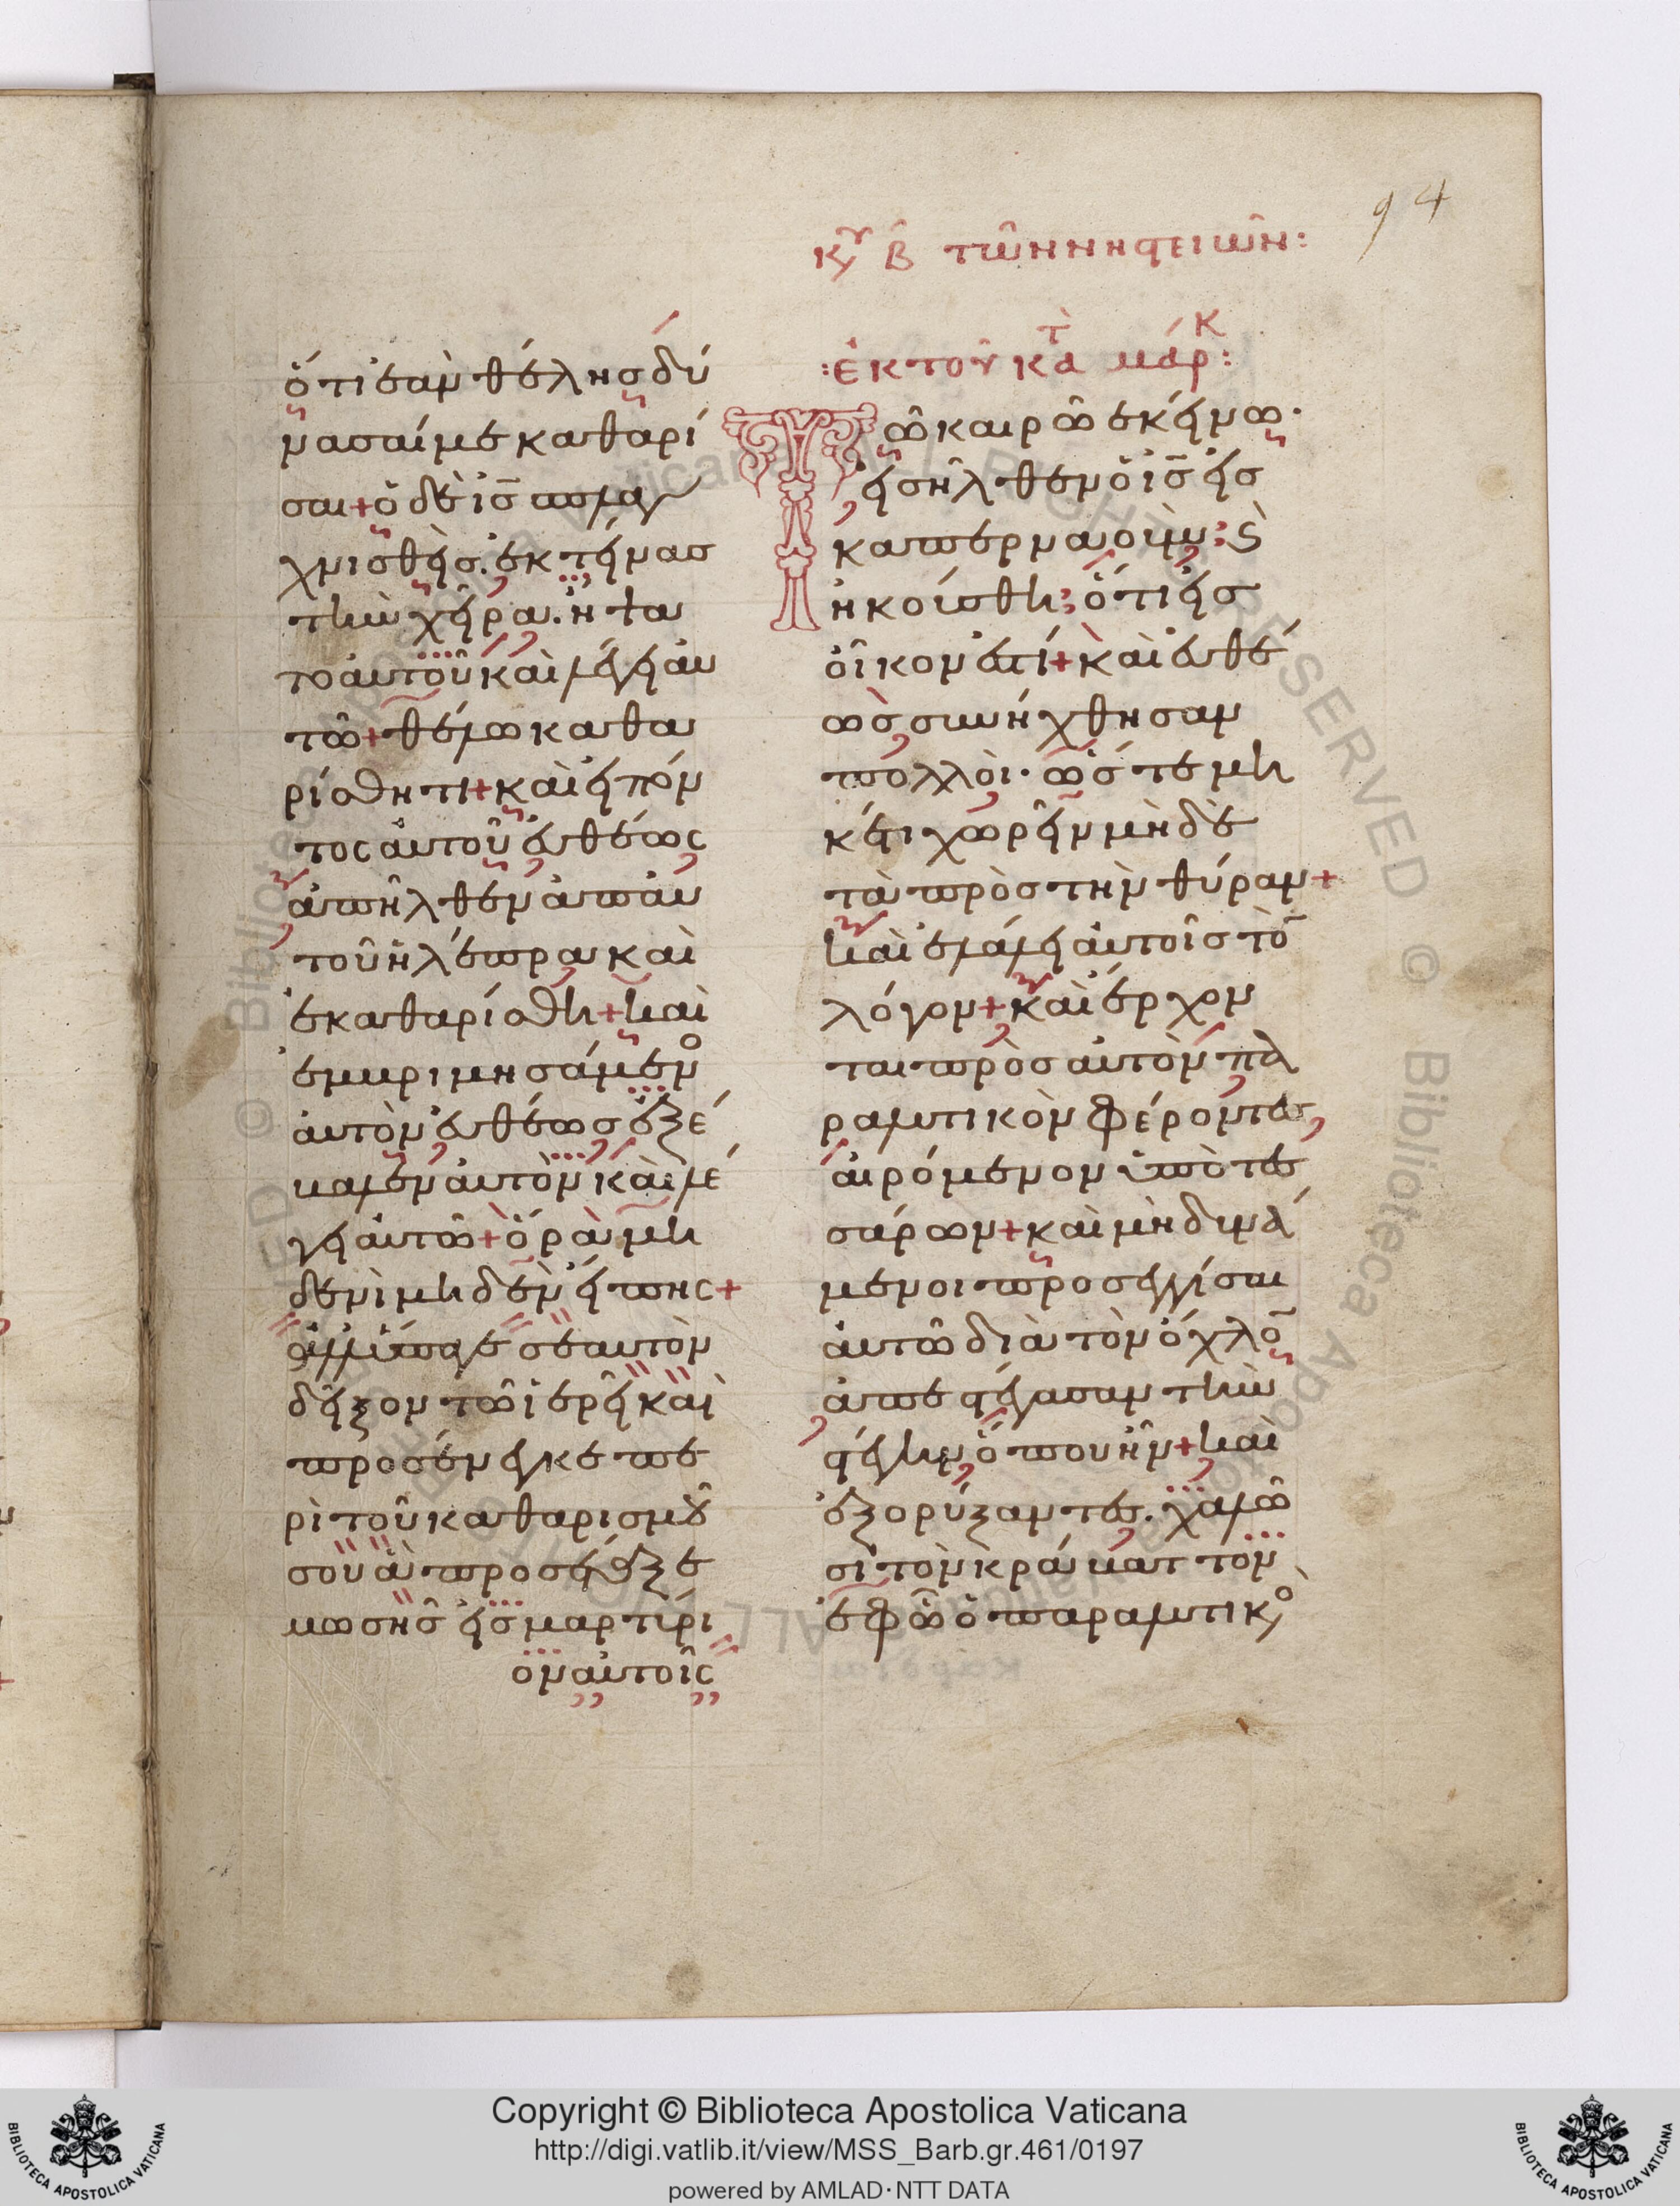 94
κυ β τῶν νηστειῶν:
ὅτι ἐὰν θέλης δύ
νασαί με καθαρί
σαι + ὁ δὲ ις σπλαγ
χνισθεὶς. ἐκτείνας
τὴν χεῖρα. ἥψα
το αὐτοῦ καὶ λέγει αὐ
τῶ + θέλω καθα
ρίσθητι + καὶ εἰπόν
τος αὐτοῦ εὐθέως
ἀπῆλθεν ἀπ αὐ
τοῦ ἡ λέπρα καὶ
ἐκαθαρίσθη + καὶ
ἐμβριμησάμενο
αὐτὸν εὐθέως ἐξέ
βαλεν αὐτὸν καὶ λέ
γει αὐτῶ + ὅρα μη
δενὶ μηδὲν εἴπης +
ἀλλ ὕπαγε σεαυτὸν
δεῖξον τῶ ἱερεῖ καὶ
προσένεγκε πε
ρὶ τοῦ καθαρισμοῦ
σου ἃ προσέταξε
μωσῆς εἰς μαρτύρι
ον αὐτοῖς
:ἐκ τοῦ κατὰ μάρκ:
Τῶ καιρῶ ἐκείνω·
εἰσῆλθεν ὁ ις εἰς
καπερναούμ: καὶ
ἠκούσθη: ὅτι εἰς
οἶκον ἐστί + καὶ εὐθέ
ως συνήχθησαν
πολλοὶ· ὥστε μη
κέτι χωρεῖν μηδὲ
τὰ πρὸς τὴν θύραν +
καὶ ἐλάλει αὐτοῖς τὸ
λόγον + καὶ ἔρχον
ται πρὸς αὐτὸν πα
ραλυτικὸν φέροντες
αἰρόμενον ὑπὸ τεσ
σάρων + καὶ μὴ δυνά
μενοι προσεγγίσαι
αὐτῶ διὰ τὸν ὄχλο
ἀπεστέγασαν τὴν
στέγην ὅπου ἦν + καὶ
ἐξορύξαντες. χαλῶ
σι τὸν κράβαττον
ἐφ ῶ ὁ παραλυτικο
Copyright © Biblioteca Apostolica Vaticana
http://digi.vatlib.it/view/MSS_Barb.gr.461/0197
powered by AMLAD·NTT DATA
BIBLIOTECA APOSTOLICA VATICANA
BIBLIOTECA APOSTOLICA VATICANA